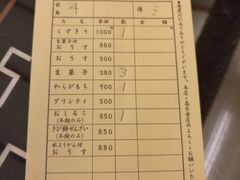 4
様
品名 単価 数 金額
くずきり 1000 1
生菓子付
おうす 980
おうす 550
生菓子 380 3
わらびもち 900 1
グリンティ 500
おしるこ 850 1
(冬期のみ)
きび餅ぜんざい 850
(冬期のみ)
水ようかん付
おうす 880